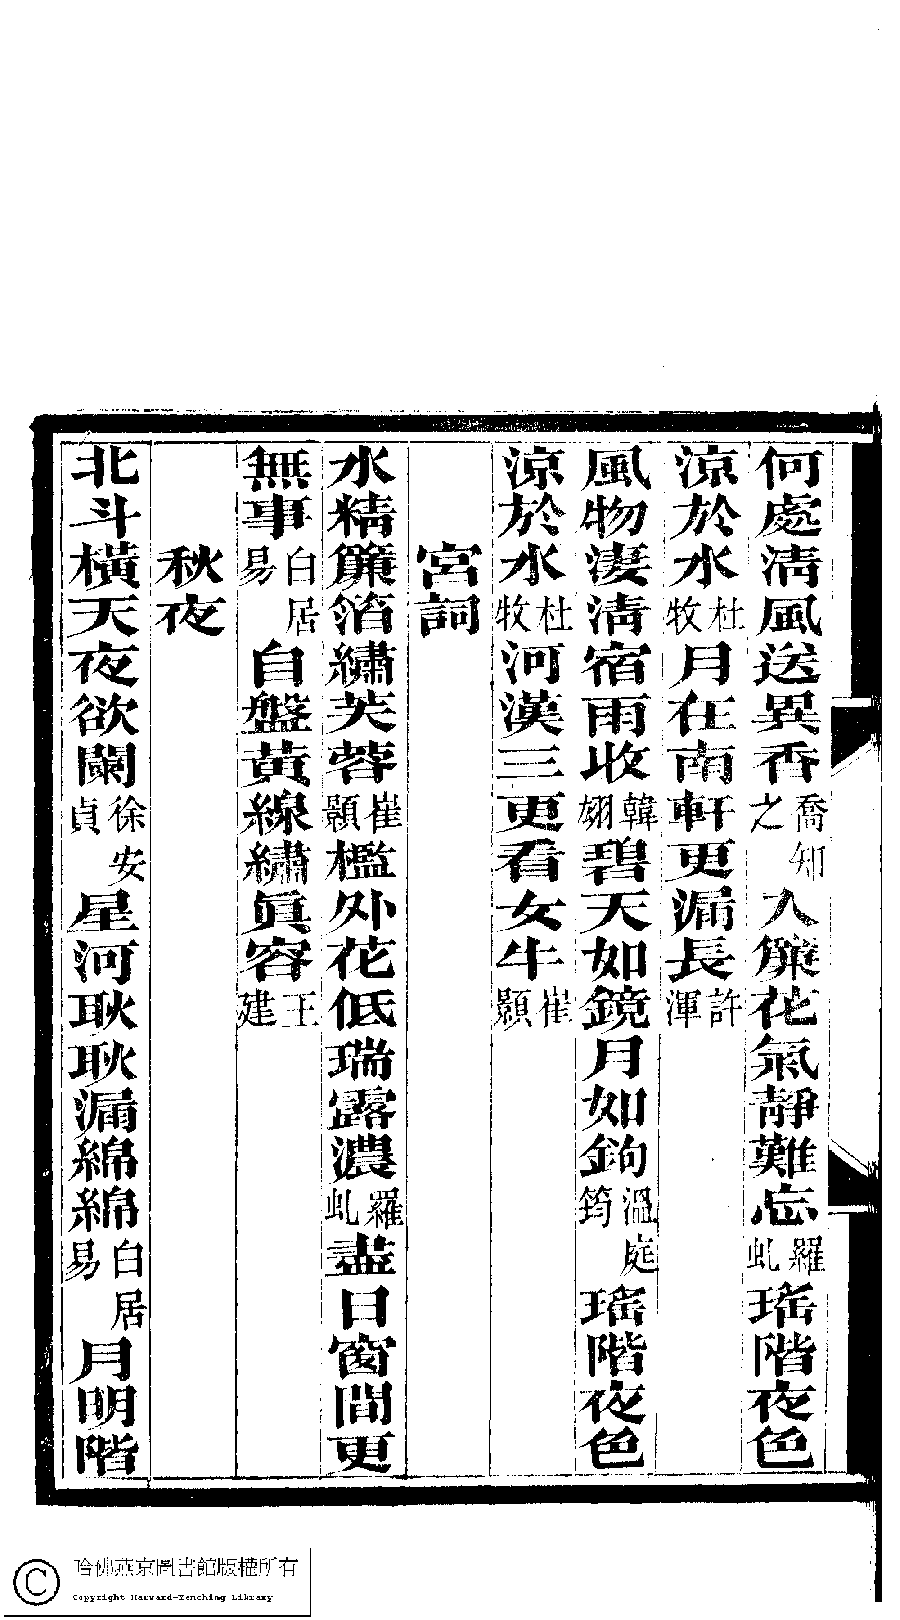 何處淸風送異香喬知之入簾花氣靜難忘羅虬瑤階夜色
涼於水杜牧月在南軒更漏長許渾
風物淒淸宿雨收韓翃碧天如鏡月如鉤溫庭筠瑤階夜色
涼於水杜牧河漢三更看女牛崔顥
宮詞
水精簾箔繡芙蓉崔顥檻外花低瑞露濃羅虬盡日窗間更
無事白居易自盤黃線繡眞容王建
秋夜
北斗橫天夜欲闌徐安貞星河耿耿漏綿綿白居易月明階
哈佛燕京圖書館版權所有
Copyright Harvard-Yenching Library